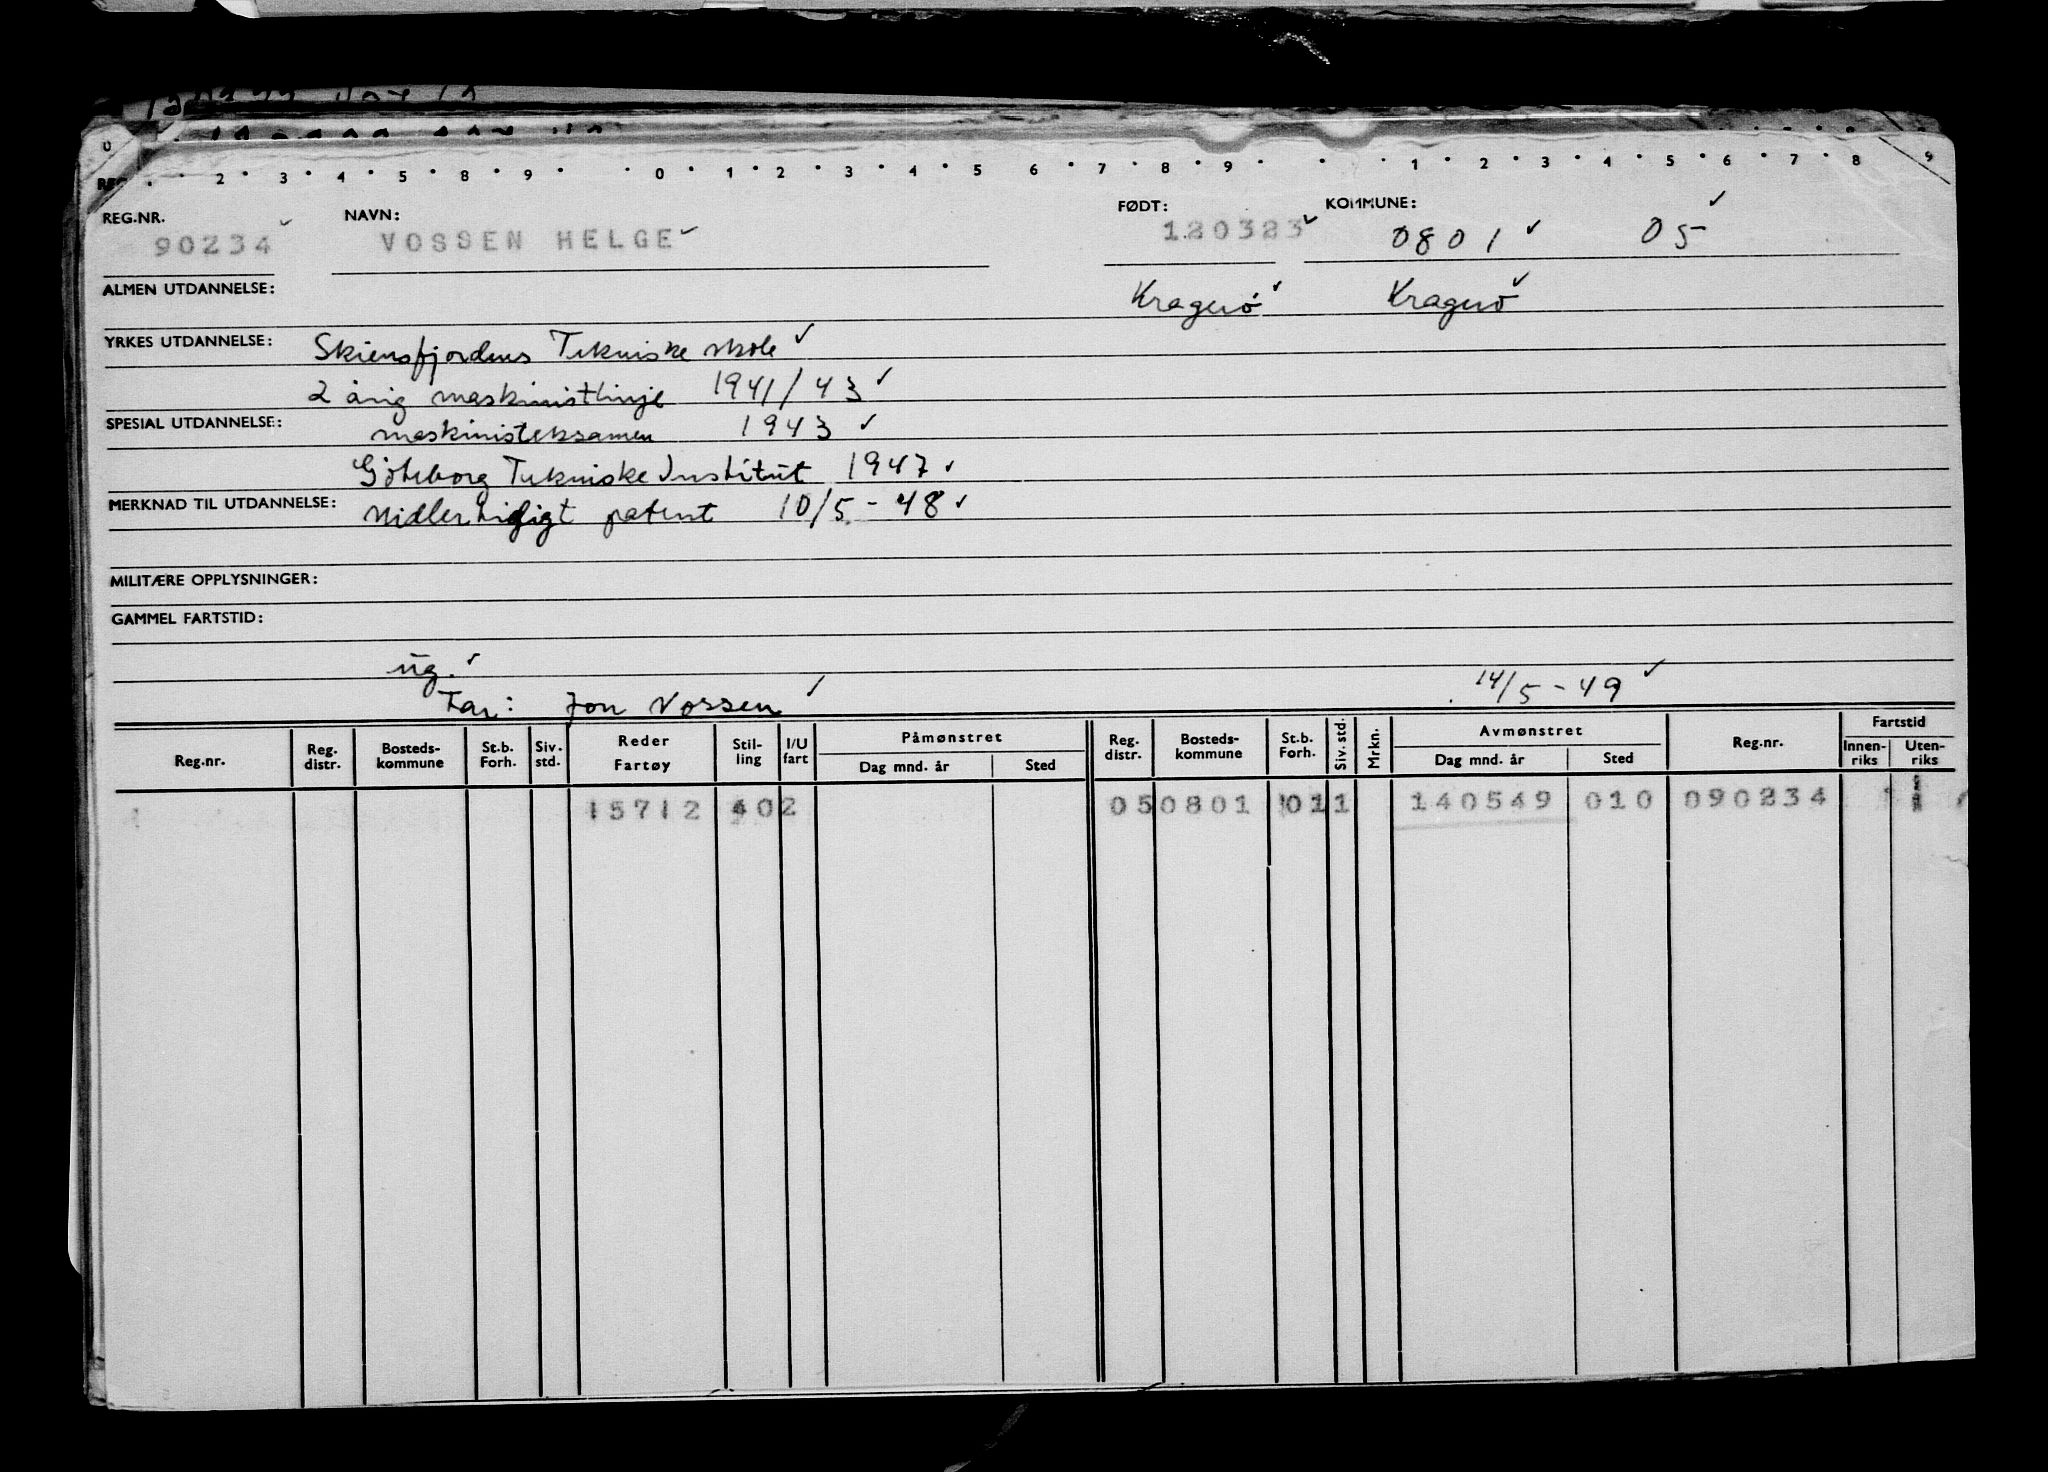 0
REG 2 3 4 5 8 9 0 1 2 3 4 5 6 7 8 9 1 2 3 4 5 6 7 8 9
REG.NR. NAVN: FØDT: KOMMUNE:
90234 VOSSEN HELGE 120323 0801 05
ALMEN UTDANNELSE: Kragerö Kragerö
YRKES UTDANNELSE: Skiensfjordens Tekniske skole
2 årig maskinistlinje 1941/43
SPESIAL UTDANNELSE: maskinisteksamen 1943
Göteborg Tekniske Institut 1947
MERKNAD TIL UTDANNELSE: Midlertidigt patent 10/5-48
MILITÆRE OPPLYSNINGER:
GAMMEL FARTSTID:
ug.
Far: Jon Vossen 14/5-49
Reg.nr. Reg. distr. Bosteds- kommune St.b. Forh. Siv. std. Reder Fartøy Stil- ling I/U fart Påmønstret Dag mnd. år Sted Reg. distr. Bosteds- kommune St.b. Forh. Siv. std. Mrkn. Avmønstret Dag mnd. år Sted Reg.nr. Fartstid Innen- riks Uten- riks
15712 402 05 0801 011 140549 010 090234